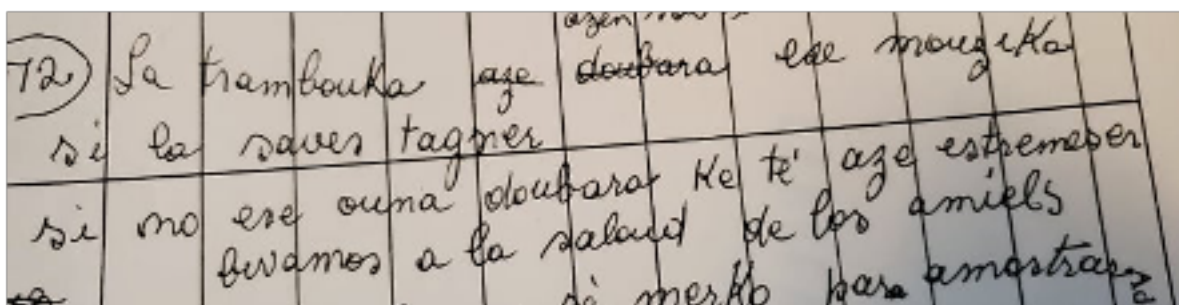 72) La trambouka aze doubara ese mouzika
si la saves tagner
si no ese ouna doubara ke té aze estremeser
buvamos a la saloud de los amiels
si merko para amostrar